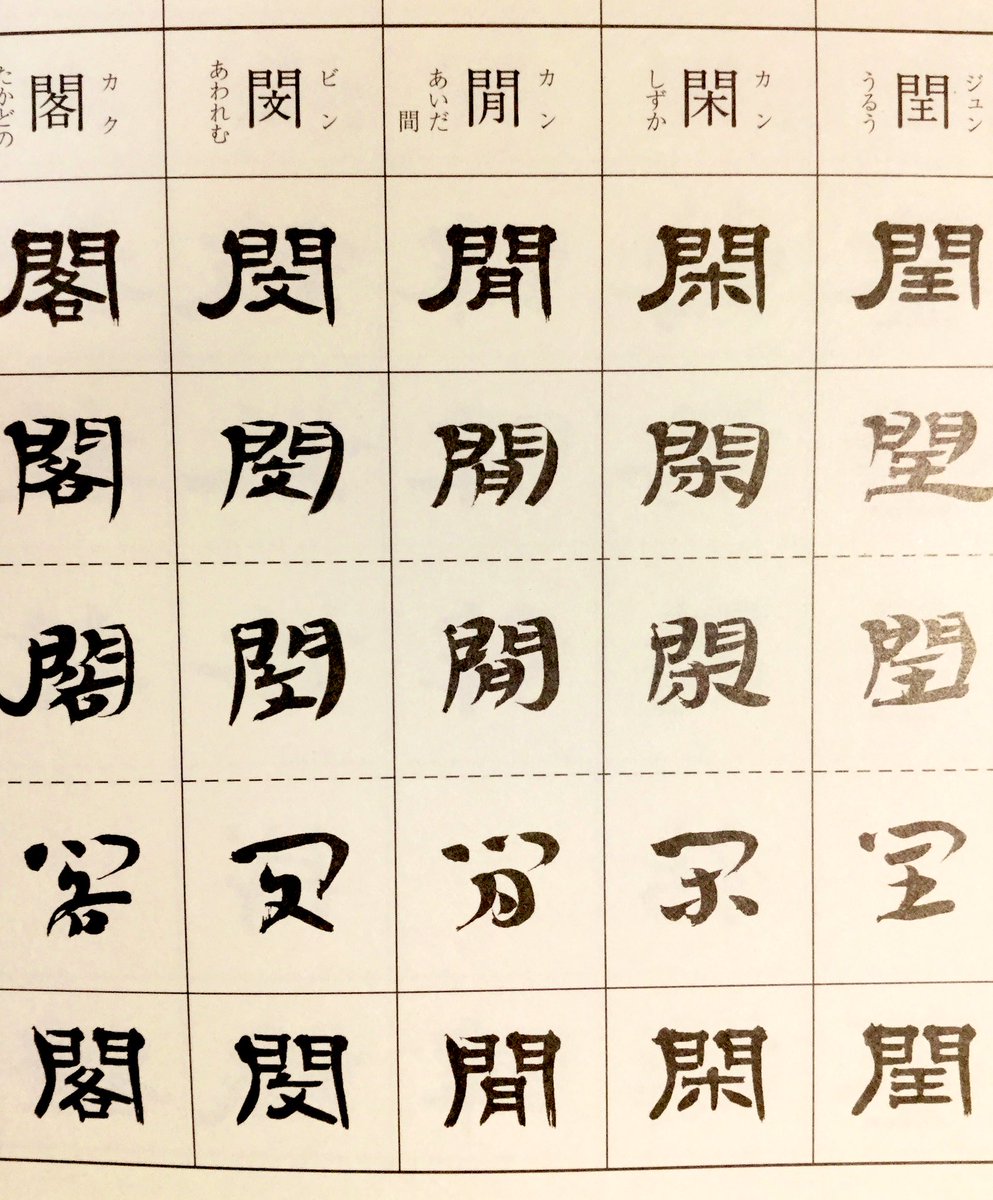 ジュン
閏
うるう
閏
閏
閏
閏
閏
カン
閑
しずか
閑
閑
閑
閑
閑
カン
閒
あいだ
間
閒
閒
閒
閒
閒
ビン
閔
あわれむ
閔
閔
閔
閔
閔
カク
閣
たかどの
閣
閣
閣
閣
閣